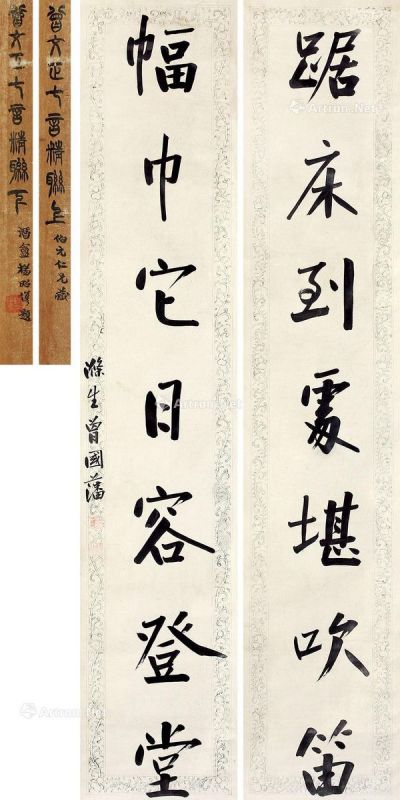 踞床到處堪吹笛
幅巾它日容登堂
滌生曾國藩
曾文正七言精聯上
伯元仁兄藏
曾文正七言精聯下